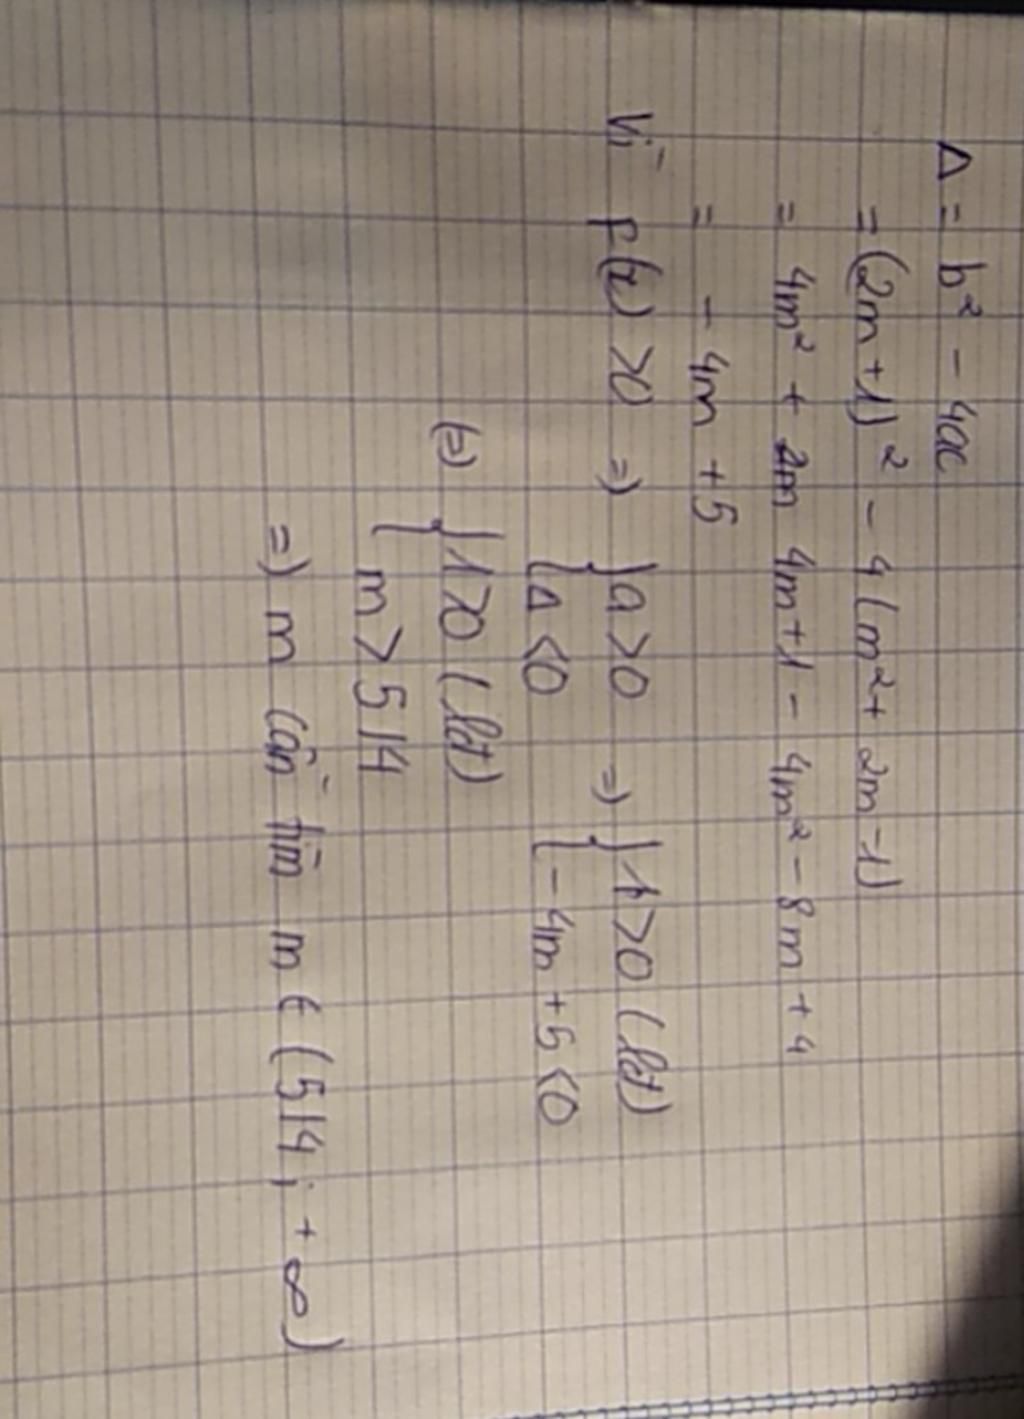 Δ = b² - 4ac
= (2m+1)² - 4(m² + 2m-1)
= 4m² + 4m+1 - 4m² - 8m + 4
= - 4m + 5
Vì f(x) > 0 => { a > 0 => { 1 > 0 (lđ)
{ Δ < 0 { - 4m + 5 < 0
(=) { 1 > 0 (lđ)
{ m > 5/4
=) m cần tìm m ∈ (5/4; +∞)